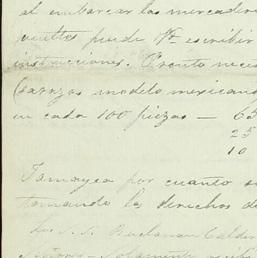 al embarcar las mercader
puede Vd. escribir
instrucciones. Pronto nece
(sarazos modelo mexican
en cada 100 piezas — 65
25
10
Tamayca por cuanto s
tomando los derechos de
los S.S. Buchanan Calder